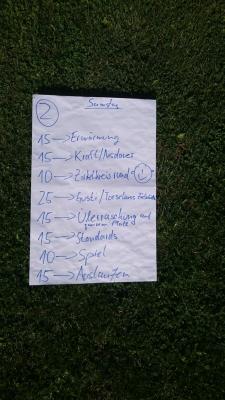 Samstag
2
15 → Erwärmung
15 → Kraft/Ausdauer
10 → Zirkelkreis und
25 → Gusti/Torschuss
15 → Überraschung und
15 → Standards
10 → Spiel
15 → Auslaufen